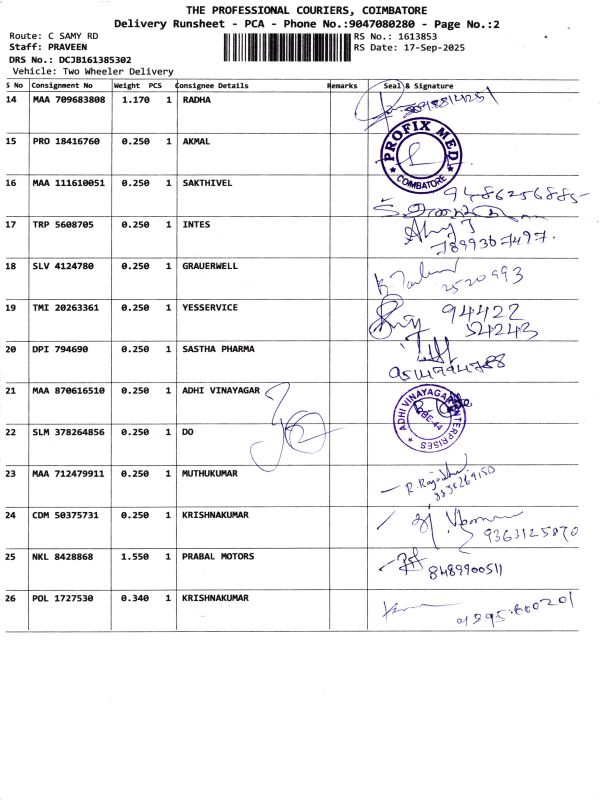 THE PROFESSIONAL COURIERS, COIMBATORE
Delivery Runsheet - PCA - Phone No.:9047080280 - Page No.:2
Route: C SAMY RD
RS No.: 1613853
Staff: PRAVEEN
RS Date: 17-Sep-2025
DRS No.: DCJB161385302
Vehicle: Two Wheeler Delivery
S No Consignment No Weight PCS Consignee Details Remarks Seal & Signature
14 MAA 709683808 1.170 1 RADHA
15 PRO 18416760 0.250 1 AKMAL
PROFIX MED
COIMBATORE
16 MAA 111610051 0.250 1 SAKTHIVEL
9486256885
17 TRP 5608705 0.250 1 INTES
7899367497.
18 SLV 4124780 0.250 1 GRAUERWELL
2520993
19 TMI 20263361 0.250 1 YESSERVICE
94422
54243
20 DPI 794690 0.250 1 SASTHA PHARMA
9514994788
21 MAA 870616510 0.250 1 ADHI VINAYAGAR
ADHI VINAYAGAR ENTERPRISES
CBE-44
22 SLM 378264856 0.250 1 DO
23 MAA 712479911 0.250 1 MUTHUKUMAR
24 CDM 50375731 0.250 1 KRISHNAKUMAR
9363125870
25 NKL 8428868 1.550 1 PRABAL MOTORS
8489900511
26 POL 1727530 0.340 1 KRISHNAKUMAR